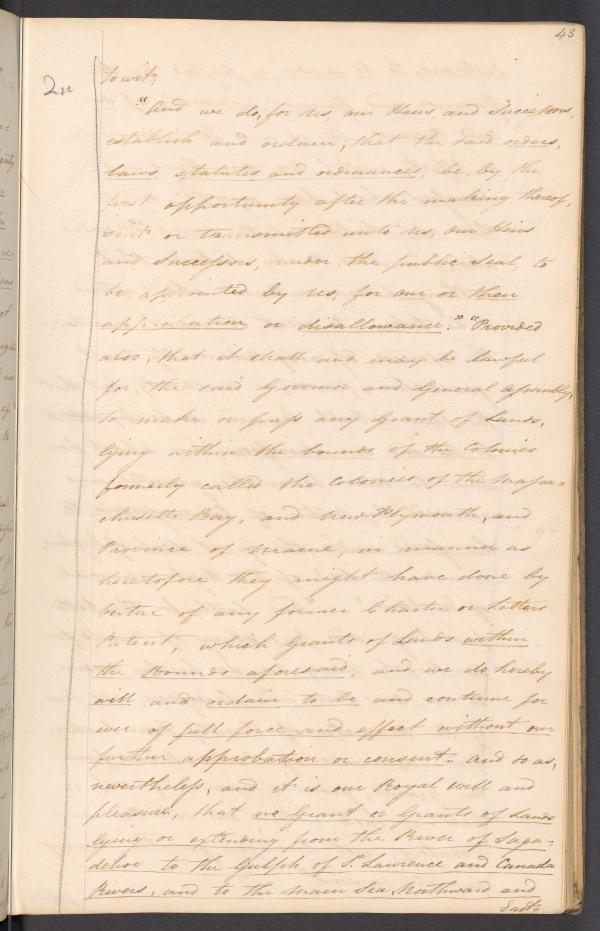 43
2n
towit;
"And we do, for us, our Heirs and Successors,
establish and ordain, that the said orders,
laws, statutes and ordinances, be, by the
first opportunity after the making thereof,
sent or transmitted unto us, our Heirs
and Successors, under the public Seal, to
be appointed by us, for our or their
approbation or disallowance." "Provided
also, that it shall and may be lawful
for the said Governor and General Assembly,
to make or pass any Grant of Lands,
lying within the bounds of the Colonies
formerly called the Colonies of the Massa=
chusetts Bay, and New Plymouth, and
Province of Maine, in manner as
heretofore they might have done by
virtue of any former Charter or Letters
Patent, which Grants of Lands within
the Bounds aforesaid, and we do hereby
will and ordain to be and continue for
ever of full force and effect without our
further approbation or consent. And so as,
nevertheless, and it is our Royal will and
pleasure, that no Grant or Grants of Lands
lying or extending from the River of Saga=
dehoc to the Gulph of St. Lawrence and Canada
Rivers, and to the main Sea Northward and
East=